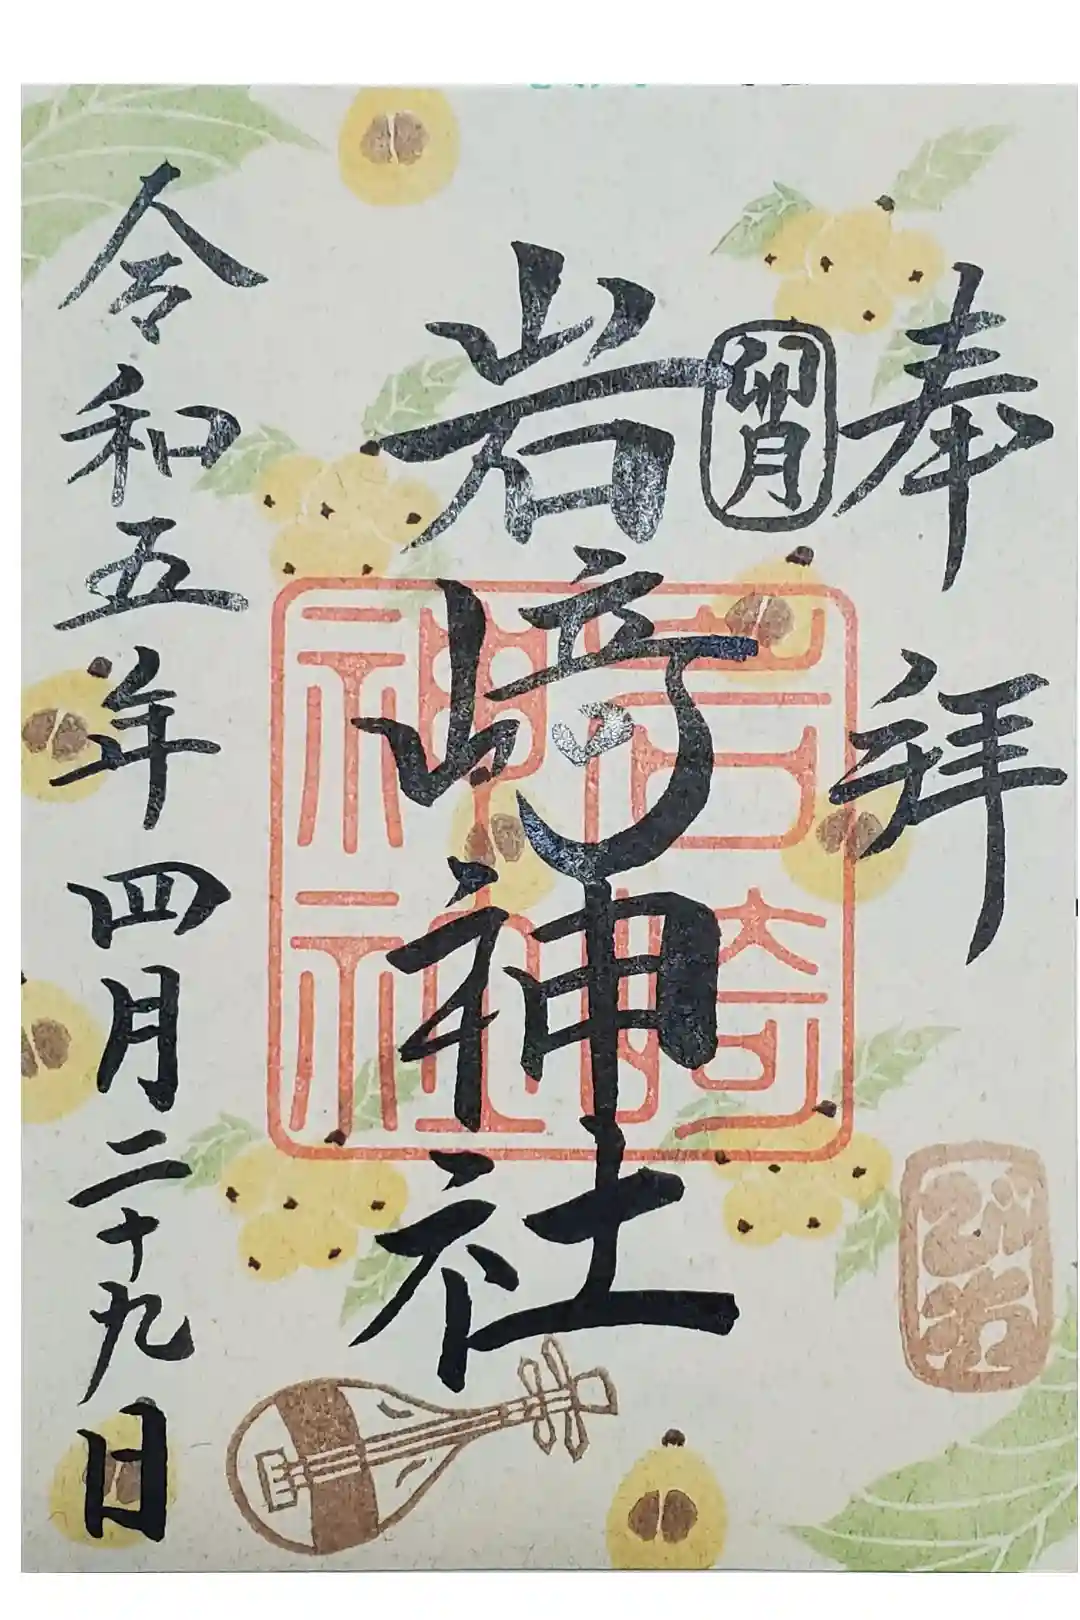 奉拝
卯月
岩﨑神社
岩崎神社
令和五年四月二十九日